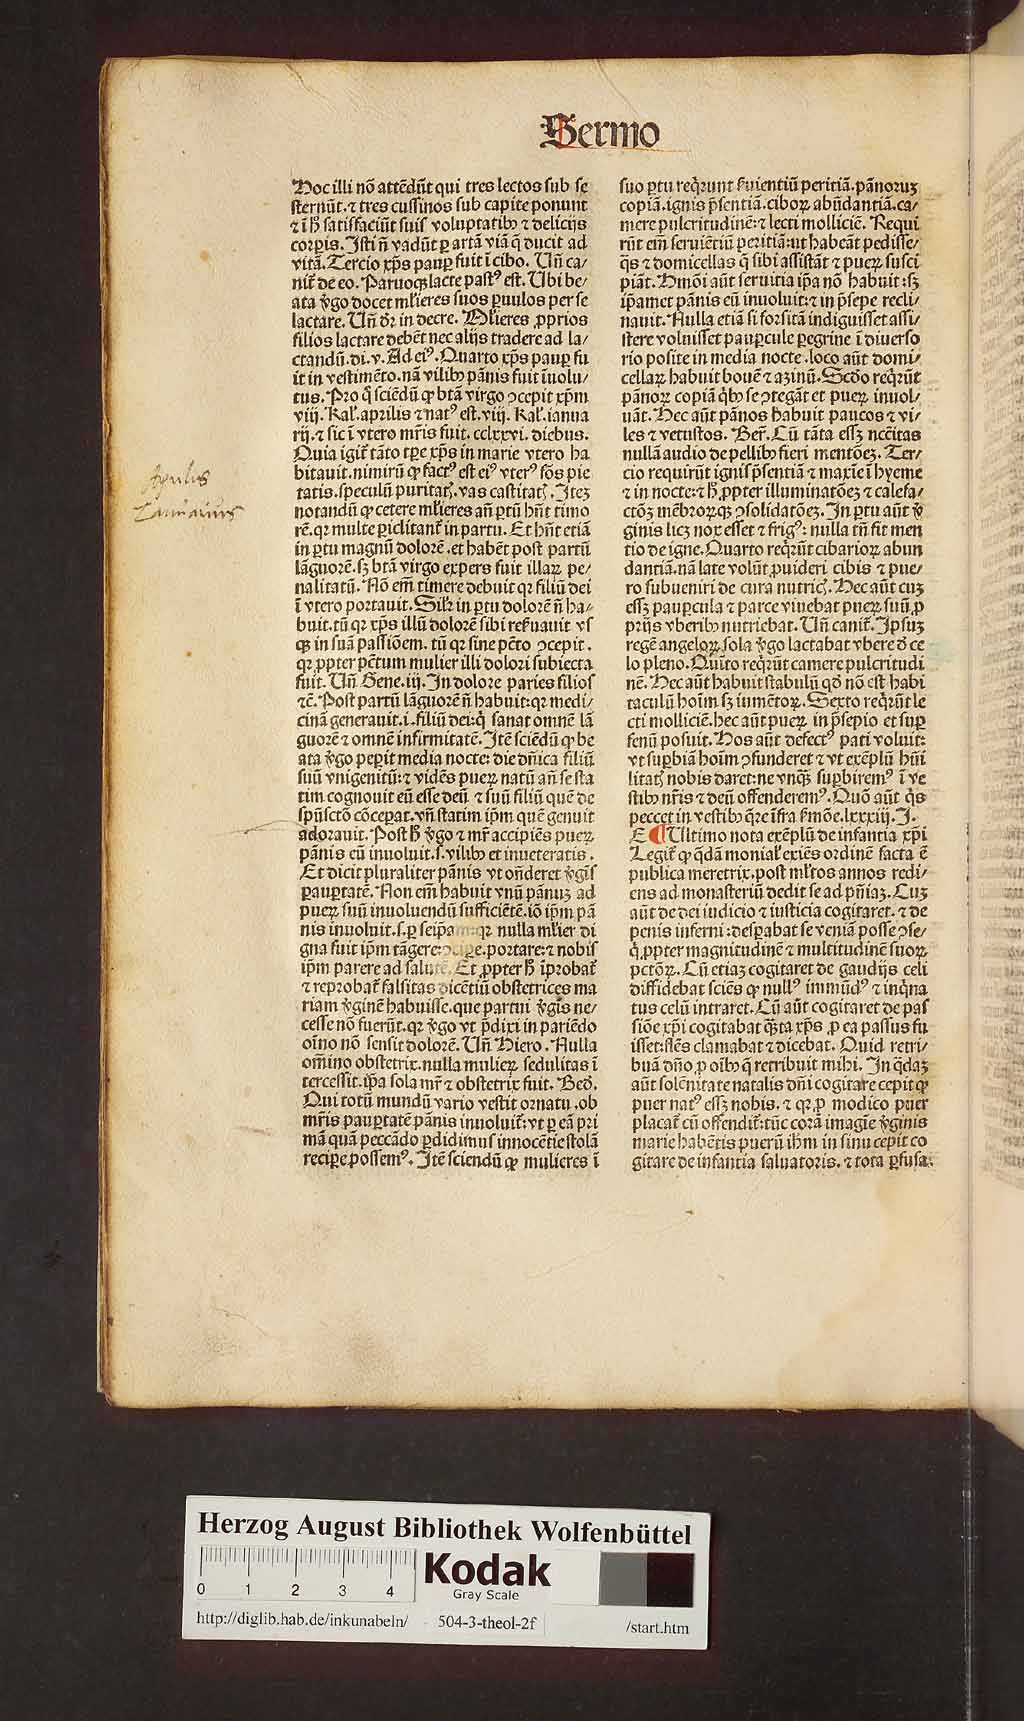 Sermo
Hoc illi nō attēdūt qui tres lectos sub se
sternūt. ⁊ tres cussinos sub capite ponunt
⁊ ī hͦ satisfaciūt suis voluptatibꝫ ⁊ delicijs
corꝑis. Isti n̄ vadūt ꝑ artā viā q̄ ducit ad
vitā. Tercio xp̄s pauꝑ fuit ī cibo. Un̄ ca/
nit̄ de eo. Paruoqꝫ lacte past⁹ est. Ubi be/
ata v̄go docet ml̄ieres suos ꝑuulos per se
lactare. Un̄ dr̄ in decre. Ml̄ieres ꝓprios
filios lactare debēt nec alijs tradere ad la/
ctandū. di. v. Ad ei⁹. Quarto xp̄s pauꝑ fu
it in vestimēto. nā vilibꝫ pānis fuit īuolu/
tus. Pro q̄ sciēdū ꝙ btā virgo ↄcepit xp̄m
viij. Kal̄. aprilis ⁊ nat⁹ est. viij. Kal̄. ianua
rij. ⁊ sic ī vtero mr̄is fuit. cclxxvi. diebus.
Quia igit̄ tāto tꝑe xp̄s in marie vtero ha
bitauit. nimirū ꝙ fact⁹ est ei⁹ vter⁹ fōs pie
tatis. speculū puritatꝭ. vas castitatꝭ. Itez
notandū ꝙ cetere ml̄ieres an̄ ꝑtū hn̄t timo
rē. qꝛ multe ꝑiclitant̄ in partu. Et hn̄t etiā
in ꝑtu magnū dolorē. et habēt post partū
lāguorē. sꝫ btā virgo expers fuit illaꝝ pe/
nalitatū. Nō em̄ timere debuit qꝛ filiū dei
ī vtero portauit. Silr̄ in ꝑtu dolorē n̄ ha/
buit. tū qꝛ xp̄s illū dolorē sibi reẜuauit vs
qꝫ in suā passiōem. tū qꝛ sine pctō ↄcepit.
qꝛ ꝓpter pctm̄ mulier illi dolori subiecta
fuit. Un̄ Gene. iij. In dolore paries filios
⁊c̄. Post partū lāguorē n̄ habuit: qꝛ medi/
cinā generauit. i. filiū dei: q̄ sanat omnē lā
guorē ⁊ omnē infirmitatē. Itē sciēdū ꝙ be
ata v̄go peꝑit media nocte: die dn̄ica filiū
suū vnigenitū: ⁊ vidēs pueꝝ natū an̄ se sta
tim cognouit eū esse deū ⁊ suū filiū quē de
spūsctō cōcepat. vn̄ statim ip̄m quē genuit
adorauit. Post hͦ v̄go ⁊ mr̄ accipiēs pueꝝ
pānis eū inuoluit. s. vilibꝫ et inueteratis.
Et dicit pluraliter pānis vt on̄deret v̄gīs
paupertatē. Non em̄ habuit vnū pānuꝫ ad
pueꝝ suū inuoluendū sufficiētē. iō ip̄m pā
nis inuoluit. s. ꝑ seip̄am: qꝛ nulla ml̄ier di
gna fuit ip̄m tāgere: ↄciꝑe. portare: ⁊ nobis
ip̄m parere ad salutē. Et ꝓpter hͦ īprobat̄
⁊ reprobat̄ falsitas dicētiū obstetrices ma
riam v̄ginē habuisse. que partui v̄gīs ne/
cesse nō fuerūt. qꝛ v̄go vt p̄dixi in pariēdo
oīno nō sensit dolorē. Un̄ Hiero. Nulla
om̄ino obstetrix. nulla mulieꝝ sedulitas ī
tercessit. ip̄a sola mr̄ ⁊ obstetrix fuit. Bed.
Qui totū mundū vario vestit ornatu. ob
mr̄is pauꝑtatē pānis inuoluit̄: vt ꝑ eā pri
mā quā peccādo ꝑdidimus innocētie stolā
reciꝑe possem⁹. Itē sciendū ꝙ mulieres ī
suo ꝑtu reqͥrunt ẜuientiū peritiā. pānoruꝫ
copiā. ignis p̄sentiā. ciboꝝ abūdantiā. ca/
mere pulcritudinē: ⁊ lecti molliciē. Requi
rūt em̄ seruiētiū peritiā: vt habeāt pedisse/
q̄s ⁊ domicellas q̄ sibi assistāt ⁊ pueꝝ susci
piāt. Hmōi aūt seruitia ip̄a nō habuit: sꝫ
ip̄amet pānis eū inuoluit: ⁊ in p̄sepe recli/
nauit. Nulla etiā si forsitā indiguisset assi/
stere voluisset pauꝑcule ꝑegrine ī diuerso
rio posite in media nocte. loco aūt domi/
cellaꝝ habuit bouē ⁊ azinū. Scd̄o reqͥrūt
pānoꝝ copiā qͥbꝫ se ↄtegāt et pueꝝ inuol/
uāt. Hec aūt pānos habuit paucos ⁊ vi/
les ⁊ vetustos. Ber̄. Cū tāta essꝫ nccītas
nullā audio de pellibꝫ fieri mentōeꝫ. Ter/
cio requirūt ignis p̄sentiā ⁊ maxīe ī hyeme
⁊ in nocte: ⁊ hͦ ꝓpter illuminatōeꝫ ⁊ calefa/
ctōꝫ mēbroꝝqꝫ ↄsolidatōeꝫ. In ꝑtu aūt v̄
ginis licꝫ nox esset ⁊ frig⁹: nulla tn̄ fit men
tio de igne. Quarto reqͥrūt cibarioꝝ abun
dantiā. nā late volūt ꝓuideri cibis ⁊ pue/
ro subueniri de cura nutricꝭ. Hec aūt cuꝫ
essꝫ pauꝑcula ⁊ parce viuebat pueꝝ suū ꝓ
prijs vberibꝫ nutriebat. Un̄ canit̄. Ipsuꝫ
regē angeloꝝ sola v̄go lactabat vbere d̄ ce
lo pleno. Quīto reqͥrūt camere pulcritudi
nē. Hec aūt habuit stabulū qd̄ nō est habi
taculū hoīm sꝫ iumētoꝝ. Sexto reqͥrūt le
cti molliciē. hec aūt pueꝝ in p̄sepio et suꝑ
fenū posuit. Hos aūt defect⁹ pati voluit:
vt suꝑbiā hoīm ↄfunderet ⁊ vt exēplū hūi
litatꝭ nobis daret: ne vnqꝫ suꝑbirem⁹ ī ve
stibꝫ nr̄is ⁊ deū offenderem⁹. Quō aūt qͥs
peccet in vestibꝫ q̄re īfra ẜmōe. lxxxiij. I.
E ¶ Ultimo nota exēplū de infantia xp̄i
Legit̄ ꝙ qͣdā monial̄ exiēs ordinē facta ē
publica meretrix. post ml̄tos annos redi/
ens ad monasteriū dedit se ad pn̄iaꝫ. Cuꝫ
aūt de dei iudicio ⁊ iusticia cogitaret. ⁊ de
penis inferni: desꝑabat se veniā posse ↄse/
qͥ ꝓpter magnitudinē ⁊ multitudinē suoꝝ
pctōꝝ. Cū etiaꝫ cogitaret de gaudijs celi
diffidebat sciēs ꝙ null⁹ immūd⁹ ⁊ inqͥna
tus celū intraret. Cū aūt cogitaret de pas
siōe xp̄i cogitabat qͣsta xp̄s ꝓ ea passus fu
isset: flēs clamabat ⁊ dicebat. Quid retri/
buā dn̄o ꝓ oībꝫ q̄ retribuit mihi. In qͣdaꝫ
aūt solēnitate natalis dn̄i cogitare cepit ꝙ
puer nat⁹ essꝫ nobis. ⁊ qꝛ ꝓ modico puer
placat̄ cū offendit̄: tūc corā imagīe v̄ginis
marie habētis puerū ih̄m in sinu cepit co
gitare de infantia saluatoris. ⁊ tota ꝑfusa
Aprilis
Januarius
Herzog August Bibliothek Wolfenbüttel
0 1 2 3 4
Kodak
Gray Scale
http://diglib.hab.de/inkunabeln/ 504-3-theol-2f /start.htm